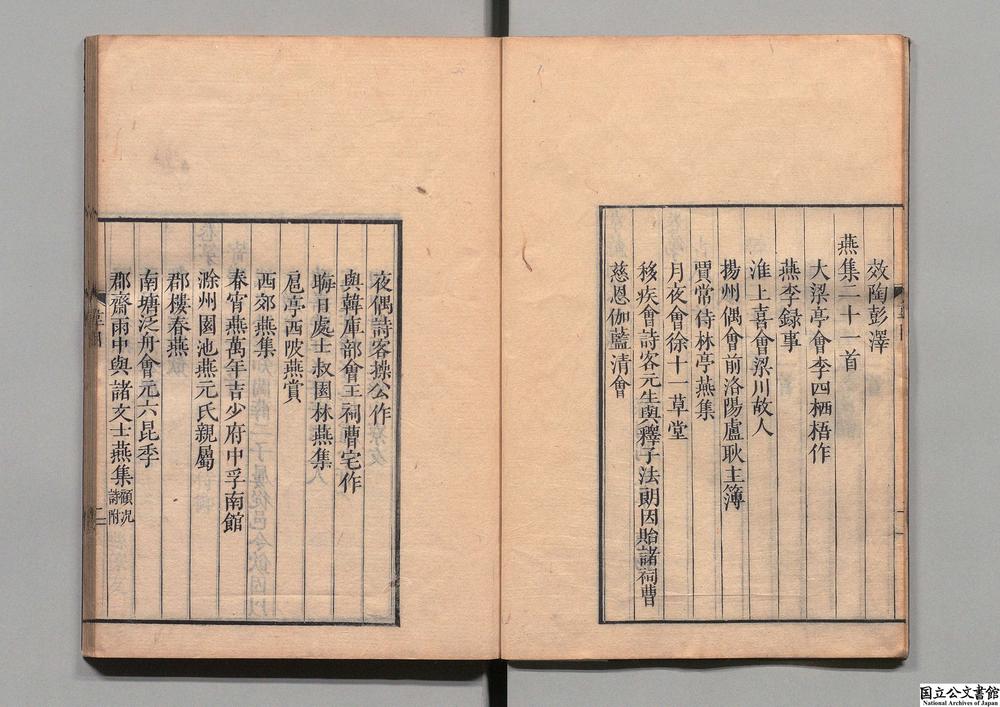 效陶彭澤
燕集二十一首
大梁亭會李四栖梧作
燕李録事
淮上喜會梁川故人
揚州偶會前洛陽盧耿主簿
賈常侍林亭燕集
月夜會徐十一草堂
移疾會詩客元生與釋子法朗因貽諸祠曹
慈恩伽藍清會
夜偶詩客操公作
與韓庫部會王祠曹宅作
晦日處士叔園林燕集
扈亭西陂燕賞
西郊燕集
春宵燕萬年吉少府中孚南館
滁州園池燕元氏親屬
郡樓春燕
南塘泛舟會元六昆季
郡齋雨中與諸文士燕集顧况詩附
二
国立公文書館
National Archives of Japan